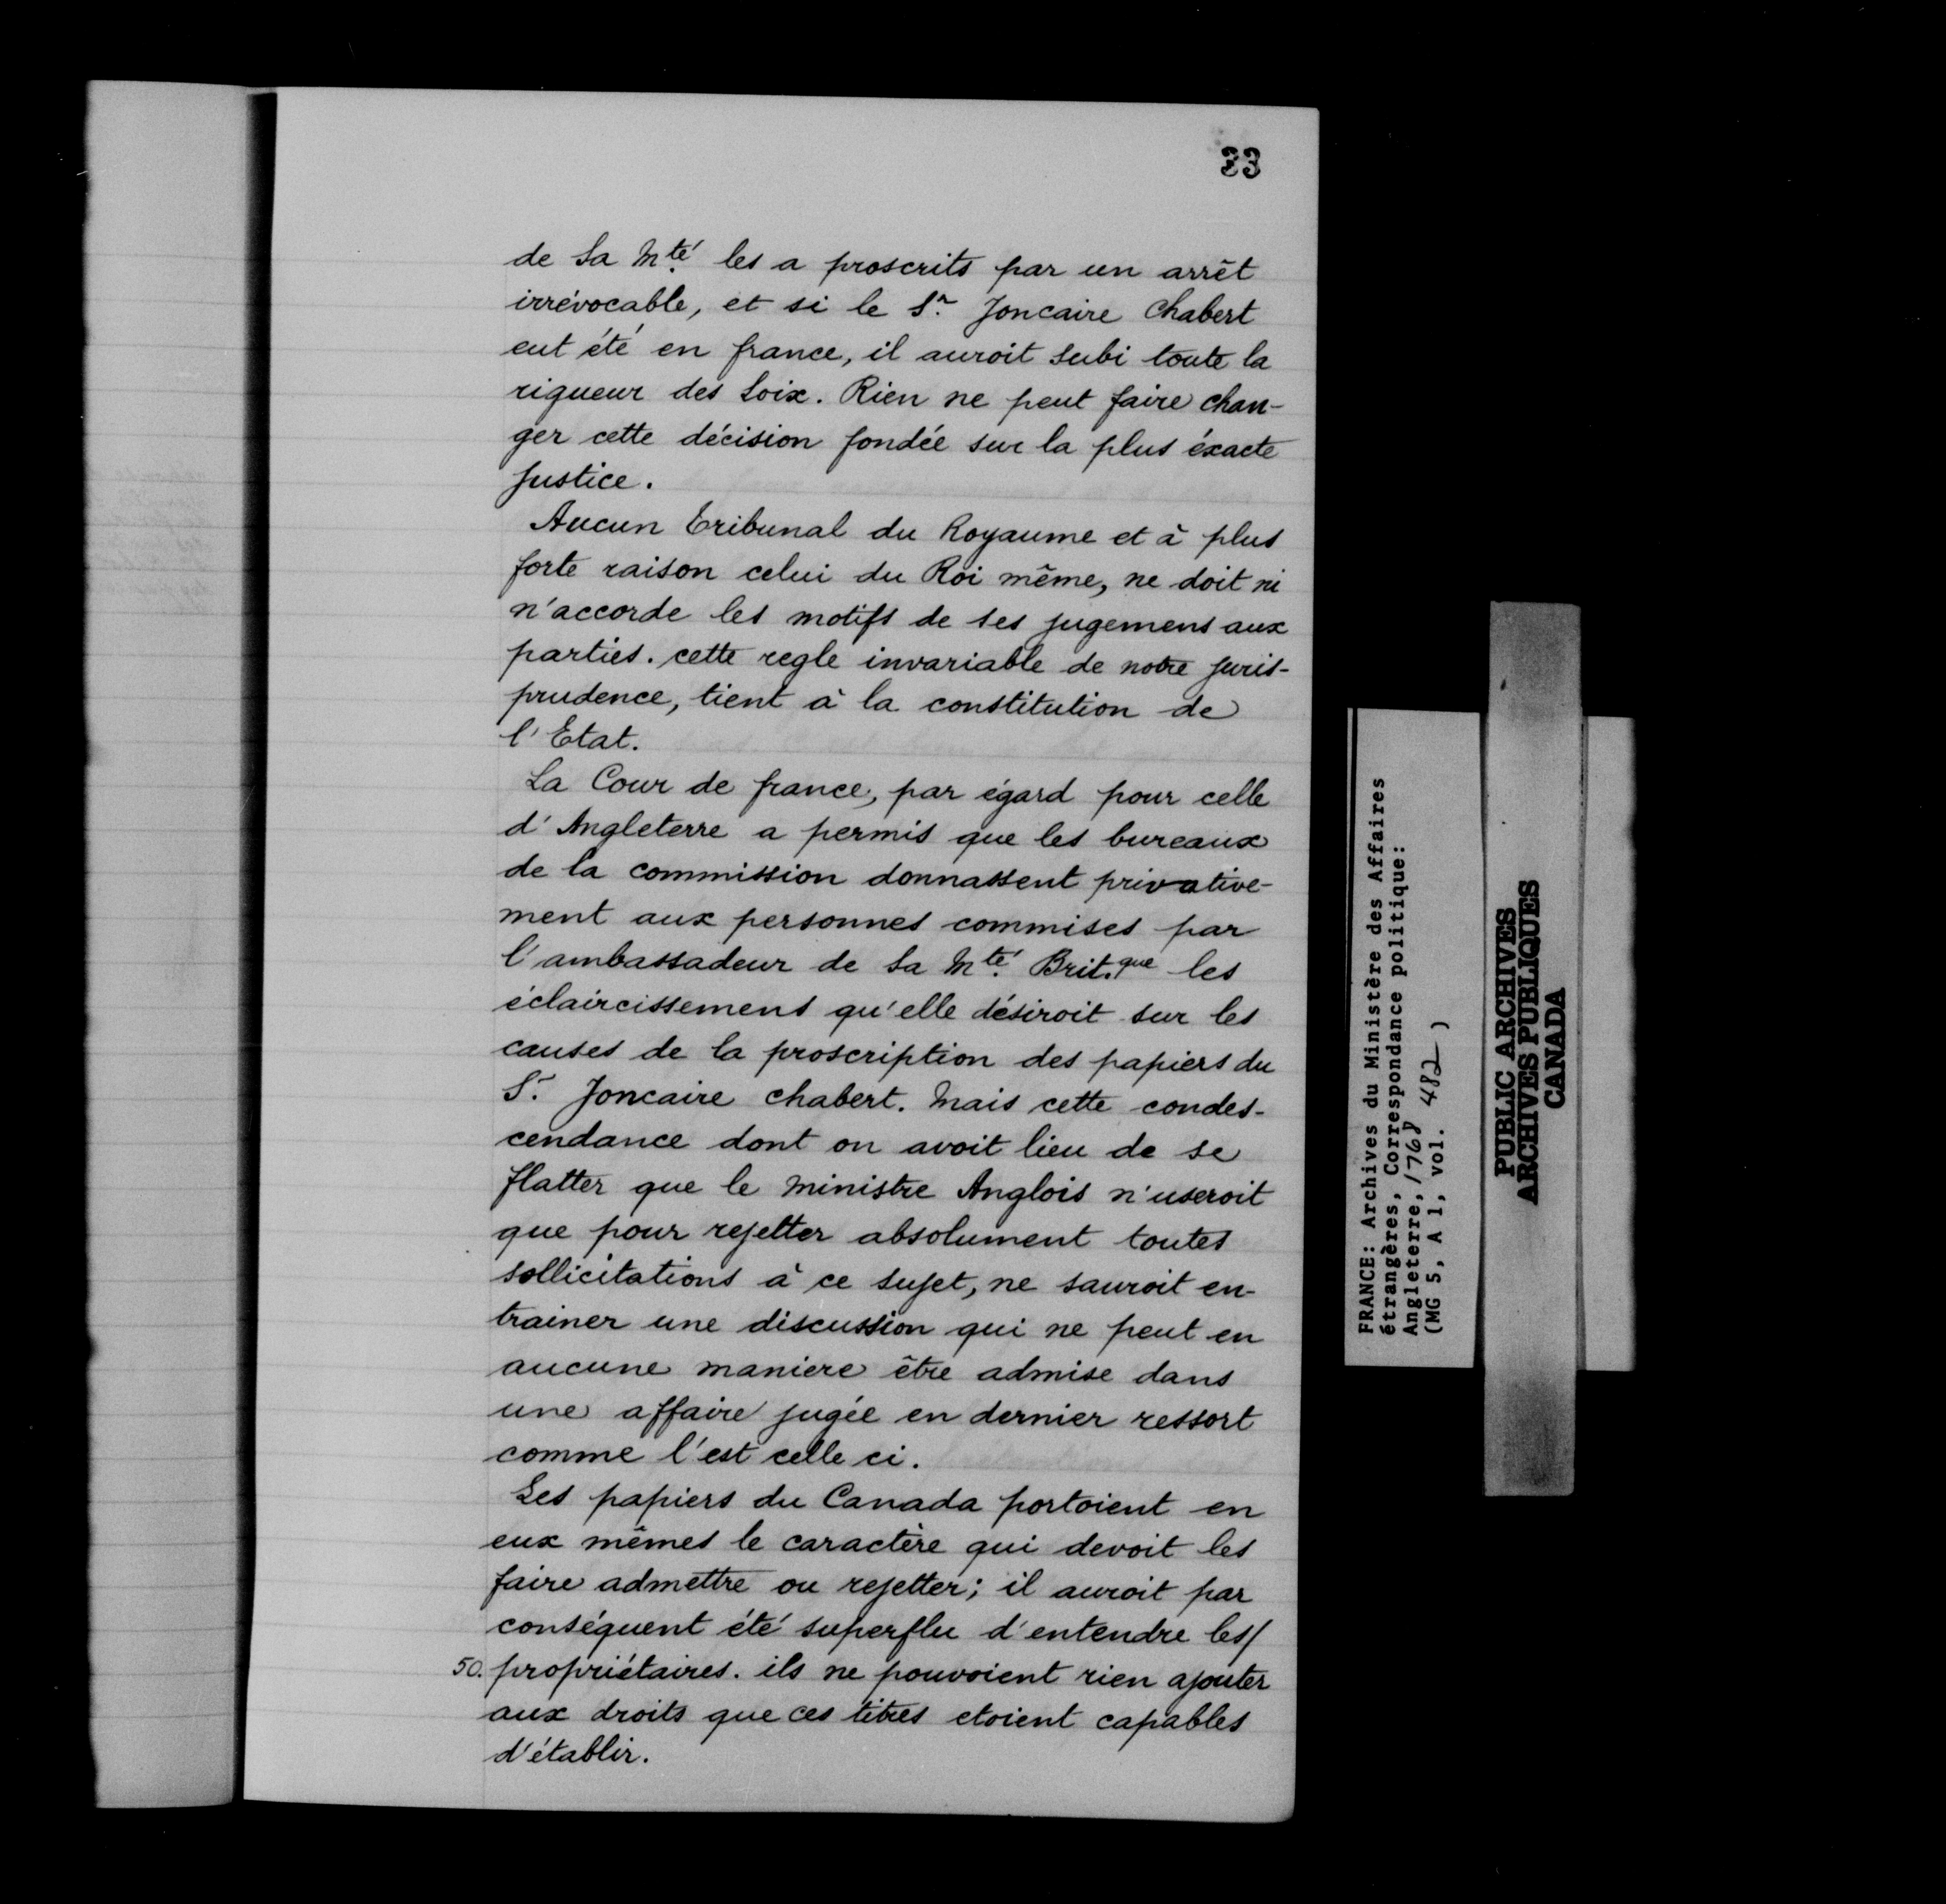 33
de Sa Mté les a proscrits par un arrêt
irrévocable, et si le Sr. Joncaire Chabert
eut été en france, il auroit subi toute la
rigueur des Loix. Rien ne peut faire chan-
ger cette décision fondée sur la plus éxacte
justice.
Aucun tribunal du Royaume et à plus
forte raison celui du Roi même, ne doit ni
n'accorde les motifs de ses jugemens aux
parties. cette regle invariable de notre juris-
prudence, tient à la constitution de
l'Etat.
La Cour de france, par égard pour celle
d'Angleterre a permis que les bureaux
de la commission donnassent privative-
ment aux personnes commises par
l'ambassadeur de Sa Mté. Brit.que les
éclaircissemens qu'elle désiroit sur les
causes de la proscription des papiers du
Sr. Joncaire chabert. Mais cette condes-
cendance dont on avoit lieu de se
flatter que le ministre Anglois n'useroit
que pour rejetter absolument toutes
sollicitations à ce sujet, ne sauroit en-
trainer une discussion qui ne peut en
aucune maniere être admise dans
une affaire jugée en dernier ressort
comme l'est celle ci.
Les papiers du Canada portoient en
eux mêmes le caractère qui devoit les
faire admettre ou rejetter; il auroit par
conséquent été superflu d'entendre les/
50. propriétaires. ils ne pouvoient rien ajouter
aux droits que ces titres etoient capables
d'établir.
FRANCE: Archives du Ministère des Affaires
étrangères, Correspondance politique:
Angleterre, 1768
(MG 5, A 1, vol. 482)
PUBLIC ARCHIVES
ARCHIVES PUBLIQUES
CANADA